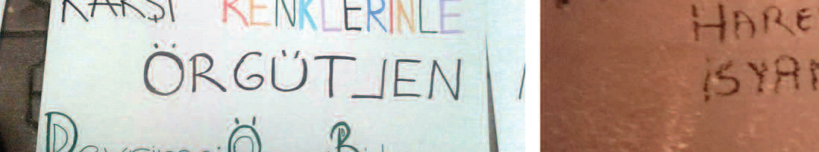 KARŞI RENKLERİNLE
ÖRGÜTLEN
HARE
İSYAN